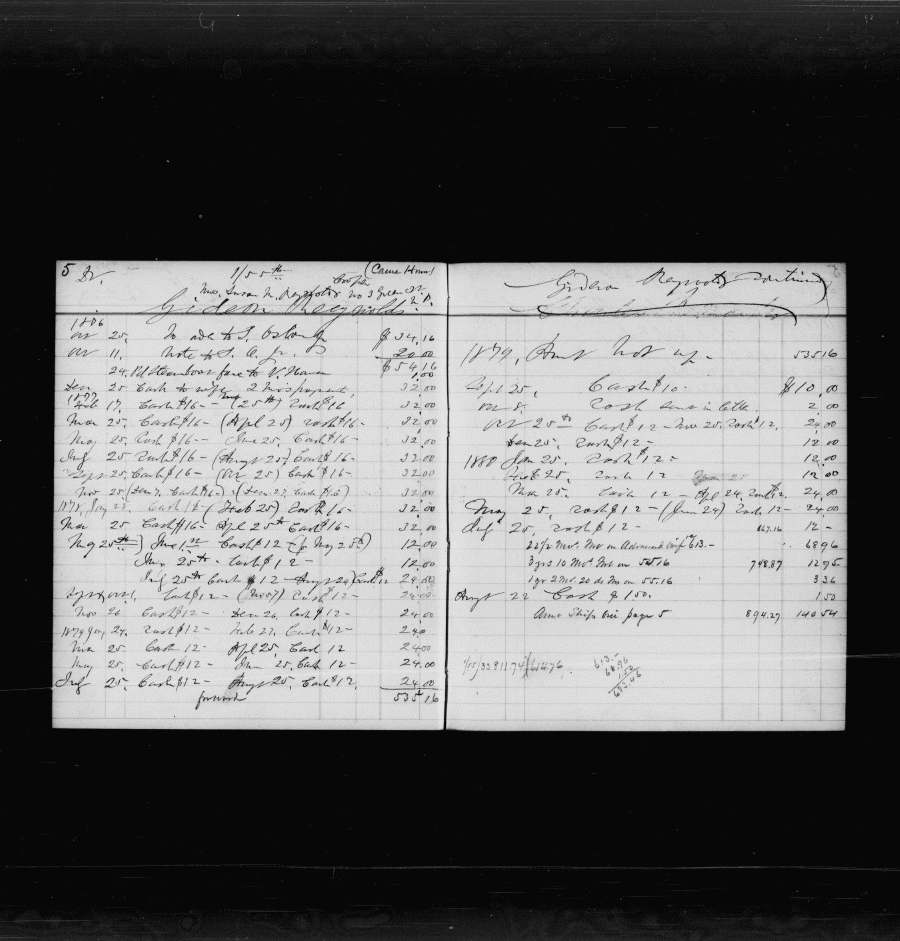 5 Dr. 1/55th (Came Home)
Cooper
Mrs. Susan N. Reynolds No 3 Green St.
Gideon Reynolds
1876
Oct 25. To ade to S. $34.16
Oct 11. Note to S. A. Jr. 20.00
$54.16
24. Pd Steamboat fare to N. Haven 1.00
Dec 25 Cash to wife 2 Mos payment, 32.00
1877
Feb 17. Cash $16 - (25th) Cash $16 32.00
Mar 25. Cash $16 - (Apl 25) Cash $16 - 32.00
May 25. Cash $16 - June 25. Cash $16 - 32.00
Jul 25 Cash $16 - (Augt 25) Cash $16 - 32.00
Sept 25. Cash $16 - (Oct 25) Cash $16 - 32.00
Nov 25 (Dec 7. Cash $16 -) (Dec 27. Cash $16) 32.00
1878. Jany 25. Cash 16 - (Feb 25) Cash 16 - 32.00
Mar 25 Cash $16 - Apl 25th Cash $16 - 32.00
May 25th } June 1st Cash $12 - (for May 25th) 12.00
June 25th - Cash $12 - 12.00
July 25th Cash $12 - Augt 24) Cash $12 24.00
Cash $12 - (Nov 7) Cash $12 - 24.00
Nov 26. Cash $12 - Dec 26. Cash $12 - 24.00
1879 Jany 24. Cash $12 - Feb 27. Cash $12 - 24.0
Mar 25. Cash 12 - Apl 25. Cash 12 24.00
May 25. Cash $12 - June 25. Cash 12 - 24.00
July 25. Cash $12 - Augt 25. Cash $12. 24.00
forward 535.16
Gideon Reynolds Continued
1879. Amt Brot up - 535.16
Sept 25. Cash $10 - $10.00
Oct 8. Cash sent in letter 2.00
Oct 25th Cash $12 - Nov 25. Cash 12. 24.00
Dec 25. Cash $12 - 12.00
1880 Jan 25. Cash $12 - 12.00
Feb 25. Cash 12 12.00
Mar 25. Cash 12 - Apl 24. Cash 12. 24.00
May 25. Cash $12 - (June 24) Cash 12 - 24.00
Aug 25. Cash $12 - 667.16 12 -
22 1/2 Mos. Int on Advanced 613. - 68.96
3 yrs 10 Mos. Int on 55.16 748.87 12.95
1 yr 2 Mo. 20 ds Int on 55.16 3.36
Augt 22 Cash $150. 150
Amt Ships page 5 894.27 140.54
613. -
68.96
1.52
683.46